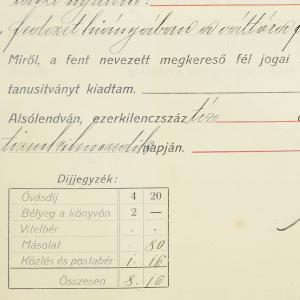 fedezet hiányában a váltóra
Miről, a fent nevezett megkereső fél jogai
tanusitványt kiadtam.
Alsólendván, ezerkilencszáz tíz
tizenkilencedik napján.
Díjjegyzék:
Óvásdíj 4 20
Bélyeg a könyvön 2 —
Vitelbér . .
Másolat . 80
Közlés és postabér 1. 16
Összesen 8. 16